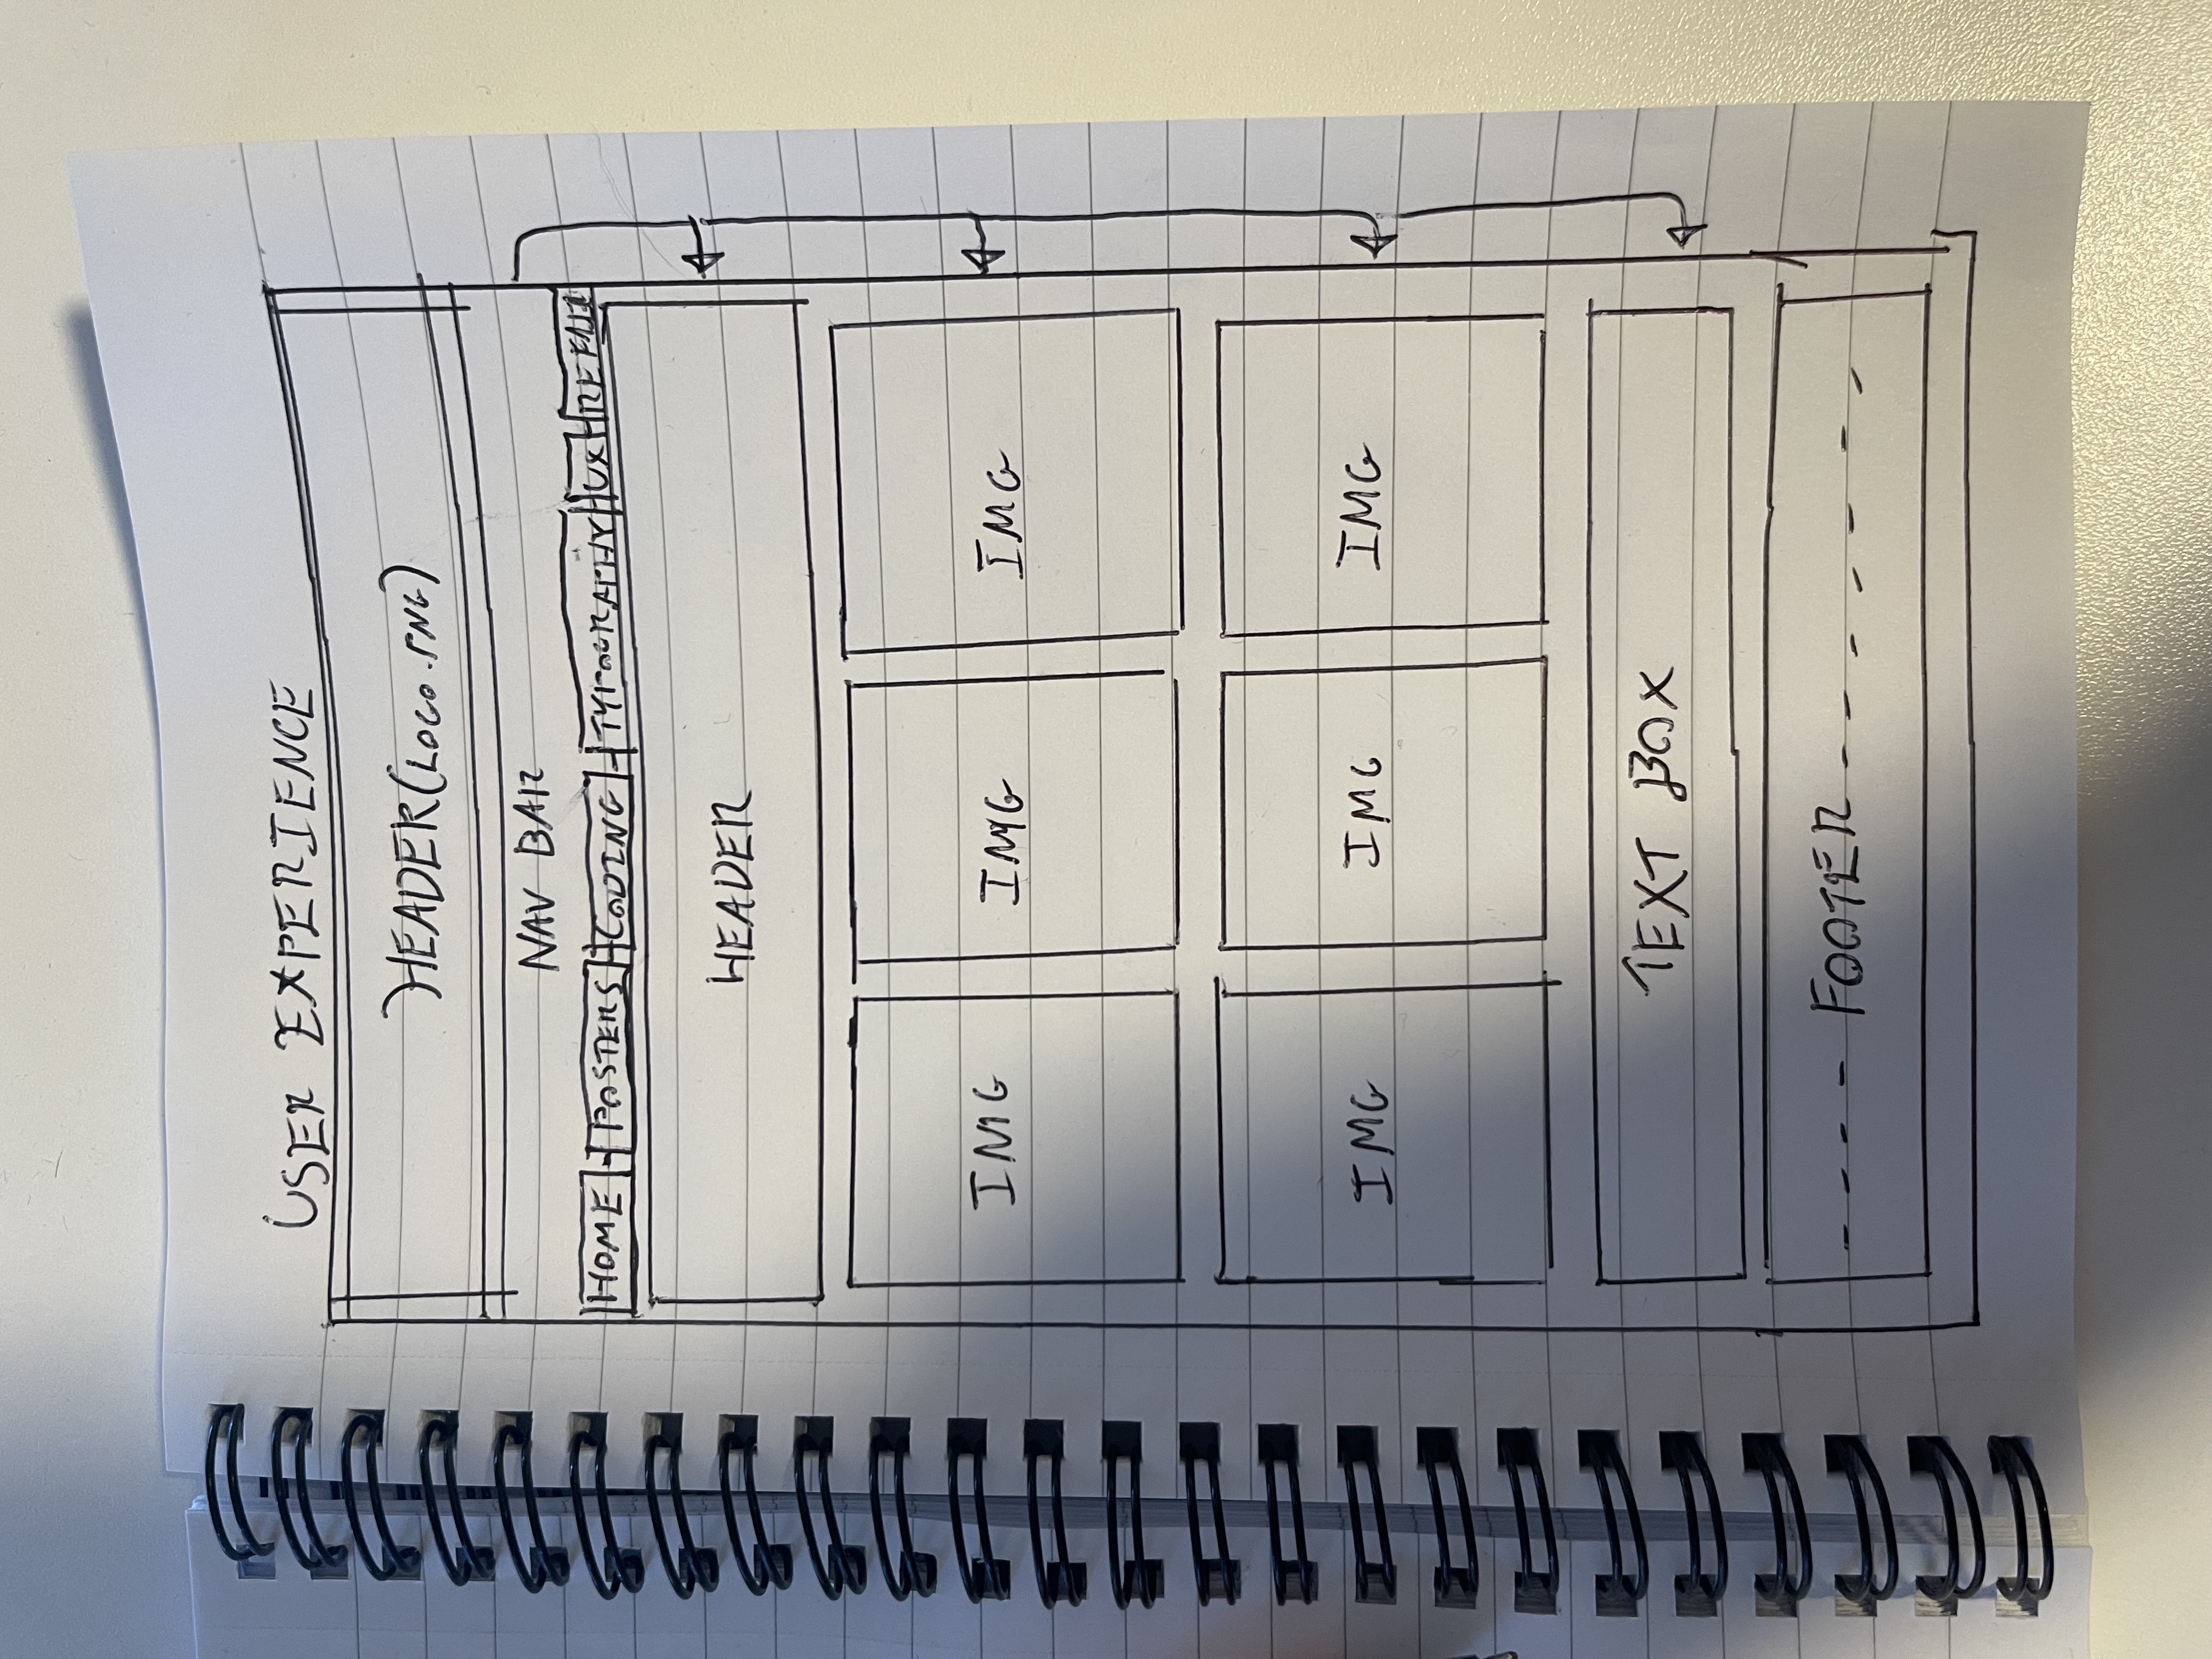 USER EXPERIENCE
HEADER(LOGO.PNG)
NAV BAR
HOME - POSTERS - CODING - TYPOGRAPHY UX
HEADER
IMG IMG IMG
IMG IMG IMG
TEXT BOX
---- FOOTER -------